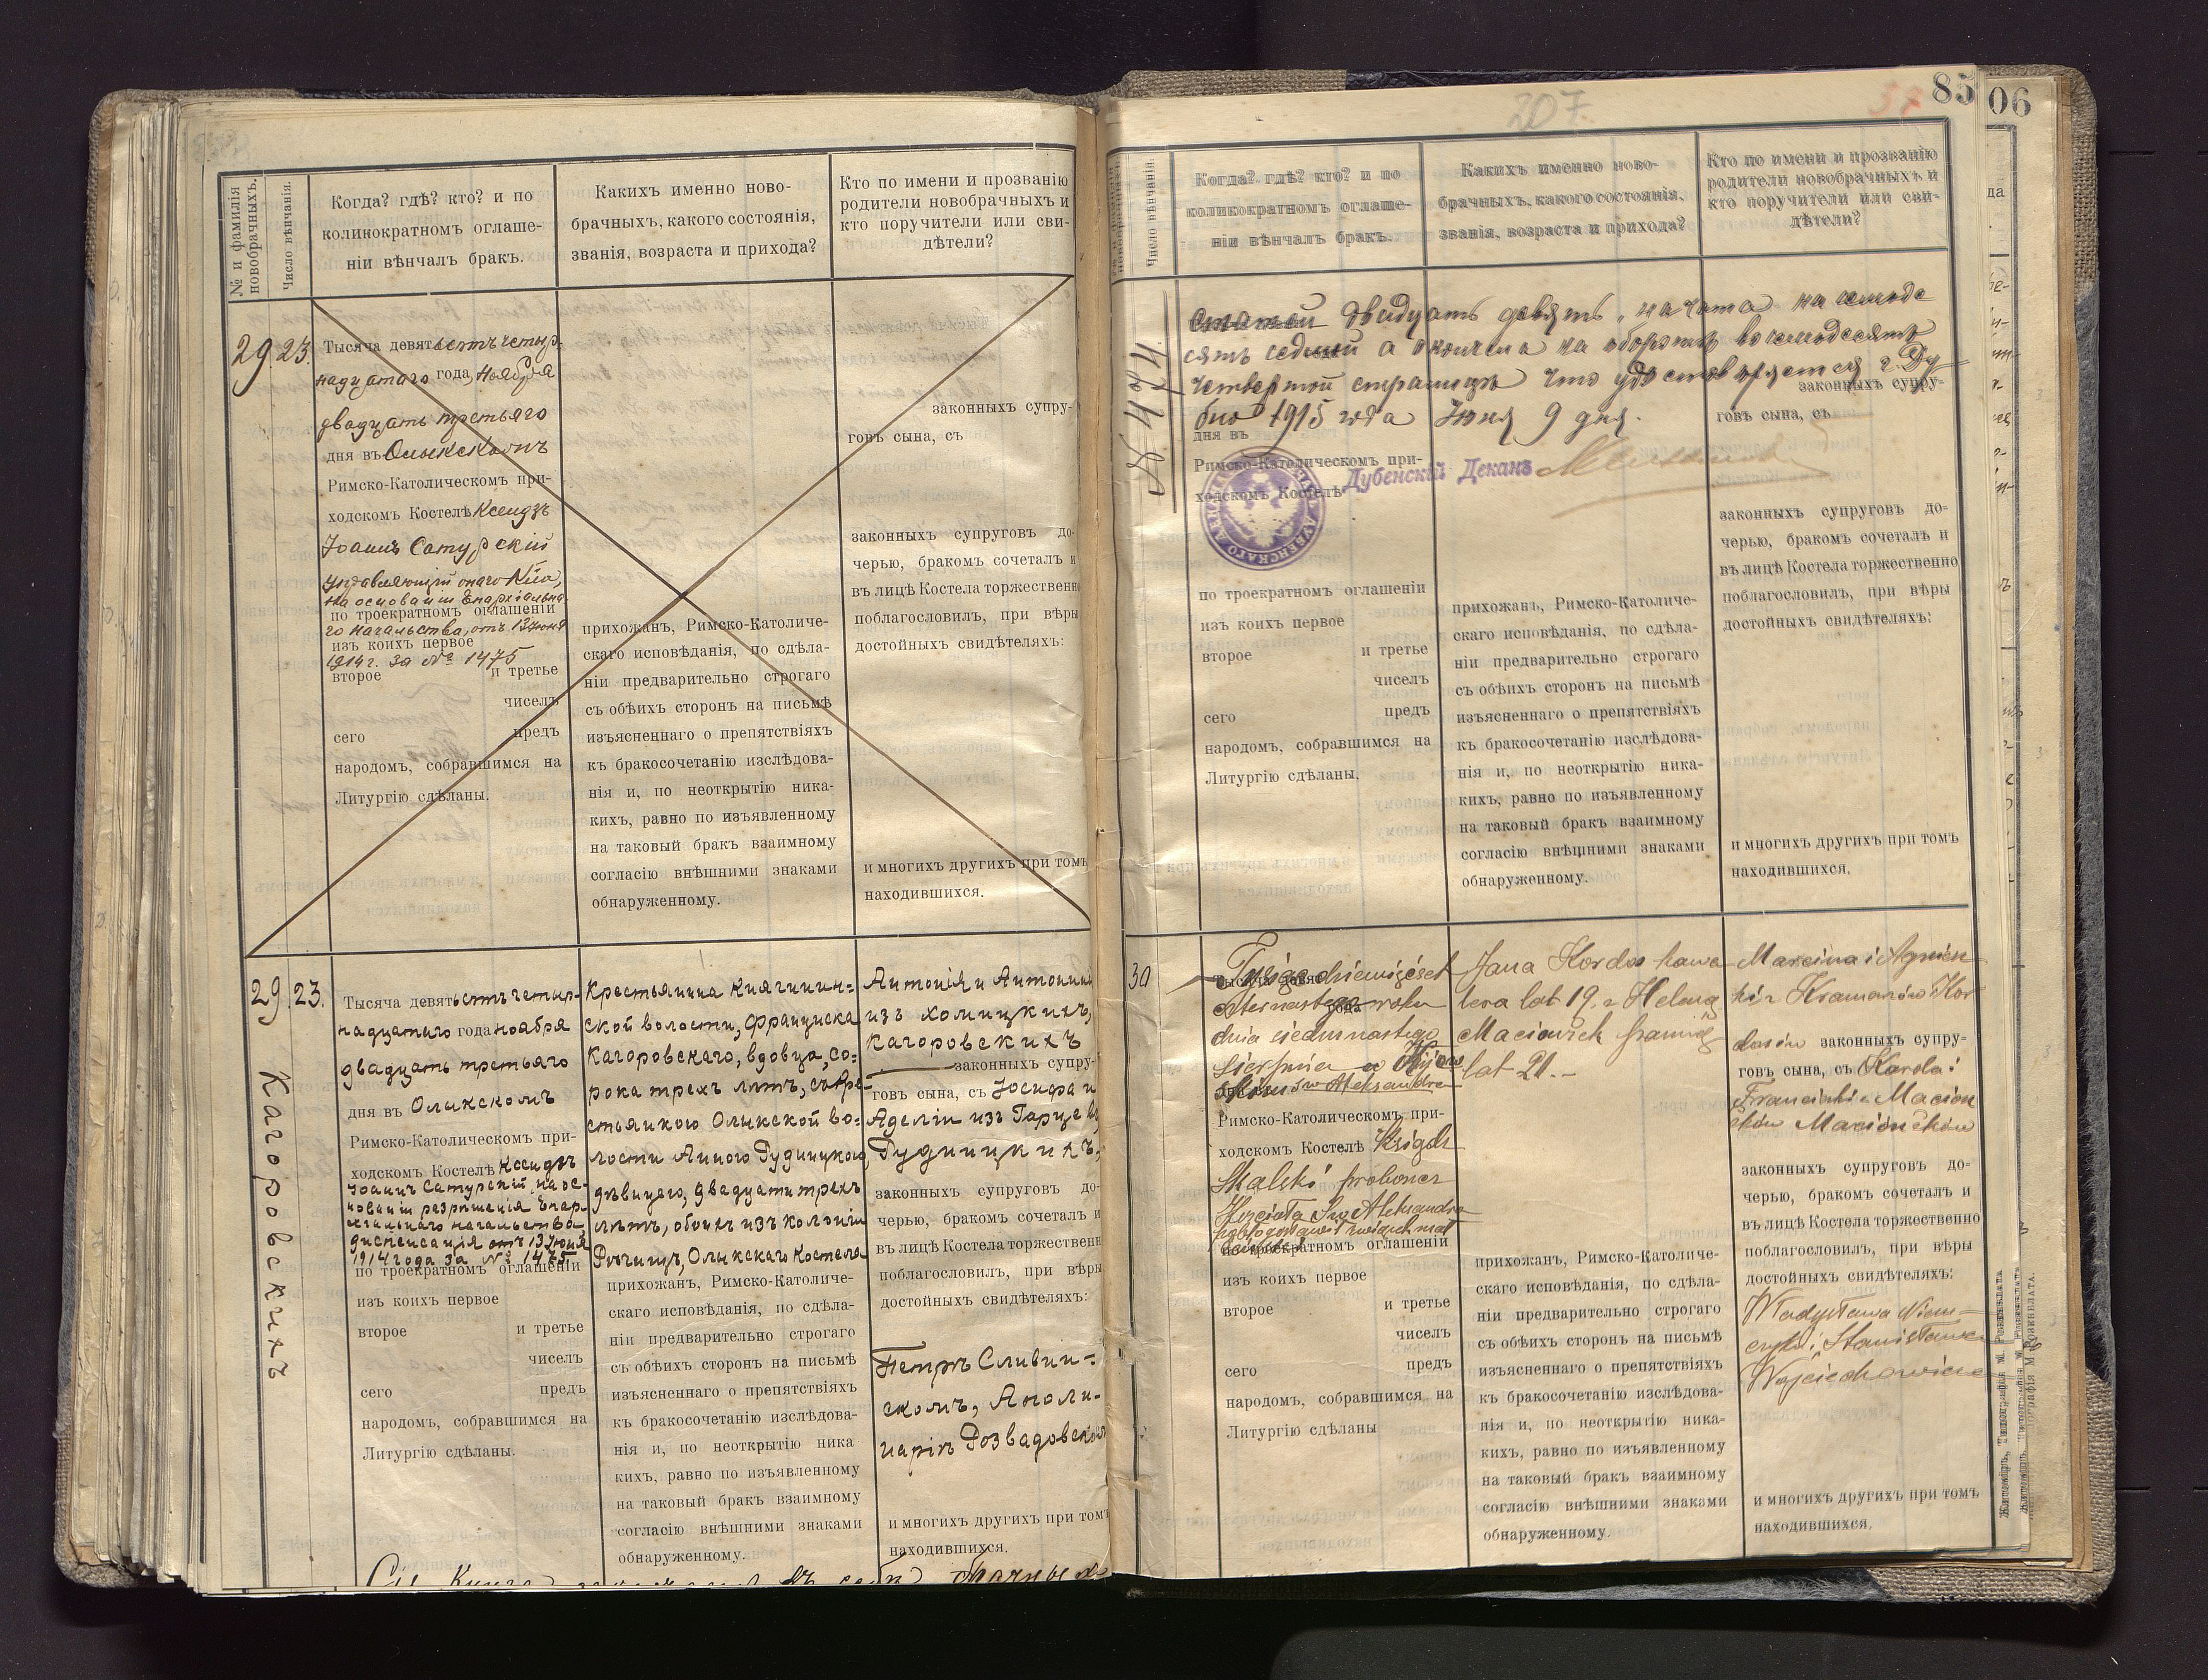 № и фамилія
новобрачныхъ.
Число вѣнчанія.
Когда? гдѣ? кто? и по
коликократномъ оглаше-
ніи вѣнчалъ бракъ.
Какихъ именно ново-
брачныхъ, какого состоянія,
званія, возраста и прихода?
Кто по имени и прозванію
родители новобрачныхъ и
кто поручители или сви-
дѣтели?
29. 23.
Тысяча девятьсотъ четыр-
надцатаго года, Ноября
двадцать третьяго
дня въ Олыкскомъ
Римско-Католическомъ при-
ходскомъ Костелѣ Ксендзъ
Іоаннъ Сатурскій
управляющій онаго К-ла,
на основаніи Епархіальна-
по троекратномъ оглашеніи
го начальства, отъ 13 Июня
изъ коихъ первое
1914 г. за № 1475
второе и третье
чиселъ
сего предъ
народомъ, собравшимся на
Литургію сдѣланы.
прихожанъ, Римско-Католиче-
скаго исповѣданія, по сдѣла-
ніи предварительно строгаго
съ обѣихъ сторонъ на письмѣ
изъясненнаго о препятствіяхъ
къ бракосочетанію изслѣдова-
нія и, по неоткрытію ника-
кихъ, равно по изъявленному
на таковый бракъ взаимному
согласію внѣшними знаками
обнаруженному.
законныхъ супру-
говъ сына, съ
законныхъ супруговъ до-
черью, бракомъ сочеталъ и
въ лицѣ Костела торжественно
поблагословилъ, при вѣры
достойныхъ свидѣтеляхъ:
и многихъ другихъ при томъ
находившихся.
29. 23.
Кагоровскихъ
Тысяча девятьсотъ четыр-
надцатаго года ноября
двадцать третьяго
дня въ Олыкскомъ
Римско-Католическомъ при-
ходскомъ Костелѣ Ксендзъ
Іоаннъ Сатурскій на ос-
нованіи разрѣшенія Епар-
хіальнаго начальства
диспенсація отъ 13 Июня
1914 года за № 1475
по троекратномъ оглашеніи
изъ коихъ первое
второе и третье
чиселъ
сего предъ
народомъ, собравшимся на
Литургію сдѣланы.
Крестьянина Княгинин=
ской волости, Франциска
Кагоровскаго, вдовца, со=
рока трехъ лѣтъ, съ кре=
стьянкою Олыкской во=
лости Анною Рудницкою,
дѣвицею, двадцати трехъ
лѣтъ, обоихъ изъ колоніи
Рѣчищъ, Олыкскаго костела
прихожанъ, Римско-Католиче-
скаго исповѣданія, по сдѣла-
ніи предварительно строгаго
съ обѣихъ сторонъ на письмѣ
изъясненнаго о препятствіяхъ
къ бракосочетанію изслѣдова-
нія и, по неоткрытію ника
кихъ, равно по изъявленному
на таковый бракъ взаимному
согласію внѣшними знаками
обнаруженному.
Антонія и Антонины
изъ Хомицкихъ,
Кагоровскихъ
законныхъ супру-
говъ сына, съ Іосифа и
Аделіи изъ
Рудницкихъ,
законныхъ супруговъ до-
черью, бракомъ сочеталъ и
въ лицѣ Костела торжественно
поблагословилъ, при вѣры
достойныхъ свидѣтеляхъ:
Петръ Сливин=
скомъ, Аполи-
наріъ Розвадовскомъ
и многихъ другихъ при томъ
находившихся.
Сія Книга
207.
57
85
06
Число вѣнчанія.
Когда? гдѣ? кто? и по
коликократномъ оглаше-
ніи вѣнчалъ бракъ.
Какихъ именно ново-
брачныхъ, какого состоянія,
званія, возраста и прихода?
Кто по имени и прозванію
родители новобрачныхъ и
кто поручители или сви-
дѣтели?
Статья двадцать девять, начата на
сятъ седьмой а окончена на оборотѣ восьмидесятъ
четвертой страницѣ что удостовѣряется г. Ду
бно 1915 года Июня 9 дня.
Дубенскій Деканъ
законныхъ супру-
говъ сына, съ
дня въ
Римско-Католическомъ при-
ходскомъ Костелѣ
по троекратномъ оглашеніи
изъ коихъ первое
второе и третье
чиселъ
сего предъ
народомъ, собравшимся на
Литургію сдѣланы.
прихожанъ, Римско-Католиче-
скаго исповѣданія, по сдѣла-
ніи предварительно строгаго
съ обѣихъ сторонъ на письмѣ
изъясненнаго о препятствіяхъ
къ бракосочетанію изслѣдова-
нія и, по неоткрытію ника-
кихъ, равно по изъявленному
на таковый бракъ взаимному
согласію внѣшними знаками
обнаруженному.
законныхъ супруговъ до-
черью, бракомъ сочеталъ и
въ лицѣ Костела торжественно
поблагословилъ, при вѣры
достойныхъ свидѣтеляхъ:
и многихъ другихъ при томъ
находившихся.
30
Tysiąc dziewięćset
czternastego roku
dnia siedmnastego
sierpnia w Kijow
skim św Aleksandra
Римско-Католическомъ при-
ходскомъ Костелѣ Ksiądz
Skalski proboszcz
Kościoła Św Aleksandra
pobłogosławił związek mał
по троекратномъ оглашеніи
изъ коихъ первое
второе и третье
чиселъ
сего предъ
народомъ, собравшимся на
Литургію сдѣланы
Jana Kordos kawa
lera lat 19. z Heleną
Maciończek panną
lat 21.-
прихожанъ, Римско-Католиче-
скаго исповѣданія, по сдѣла-
ніи предварительно строгаго
съ обѣихъ сторонъ на письмѣ
изъясненнаго о препятствіяхъ
къ бракосочетанію изслѣдова-
нія и, по неоткрытію ника-
кихъ, равно по изъявленному
на таковый бракъ взаимному
согласію внѣшними знаками
обнаруженному.
Marcina i Agniesz
ki z Kramarzów Kor
dosów законныхъ супру-
говъ сына, съ Karola i
Franciszki z Macion
czków Maciończków
законныхъ супруговъ до-
черью, бракомъ сочеталъ и
въ лицѣ Костела торжественно
поблагословилъ, при вѣры
достойныхъ свидѣтеляхъ:
Władysława Niem-
czyka i Stanisława
Wojciechowicza
и многихъ другихъ при томъ
находившихся.